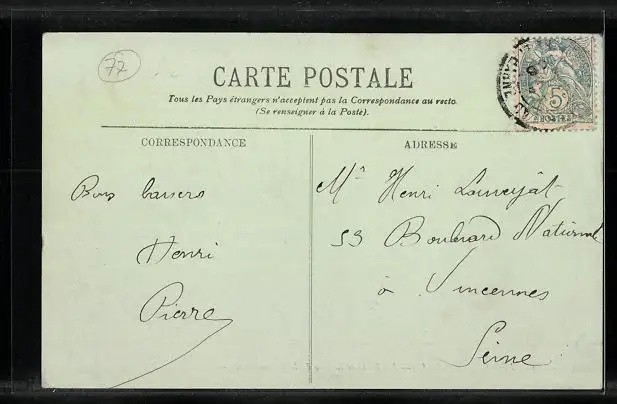 77
CARTE POSTALE
Tous les Pays étrangers n'acceptent pas la Correspondance au recto
(Se renseigner à la Poste).
CORRESPONDANCE
ADRESSE
Bons baisers
Henri
Pierre
Mr Henri
53 Boulevard National
à Vincennes
Seine
5c
POSTES